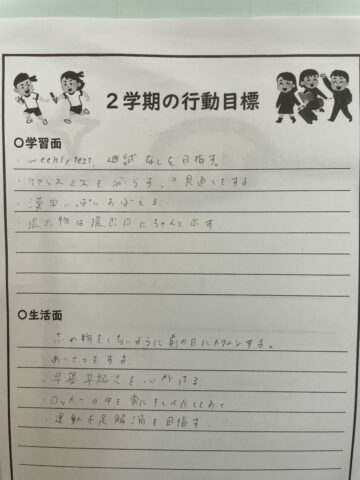 2学期の行動目標
○学習面
・weekly test 追試なしを目指す。
・ケアレスミスをへらす。→見直しをする。
・漢字いっぱいおぼえる。
・提出物は提出日にちゃんと出す
○生活面
・忘れ物をしないように前の日にカクニンする。
あいさつをする。
・早寝早起きを心がける。
・ロッカーの中を常にキレイにしておく
・運動不足解消を目指す。